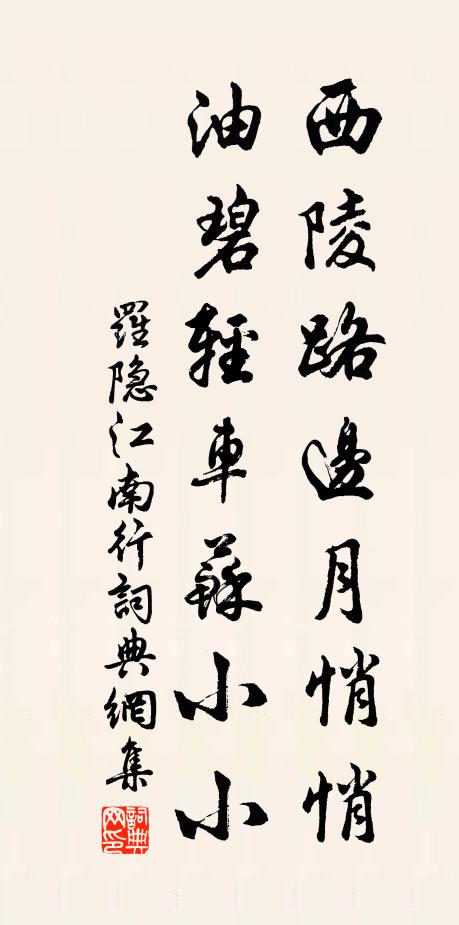 西陵路邊月悄悄
油碧輕車蘇小小
羅隐江南行詞典網集
詞典网印